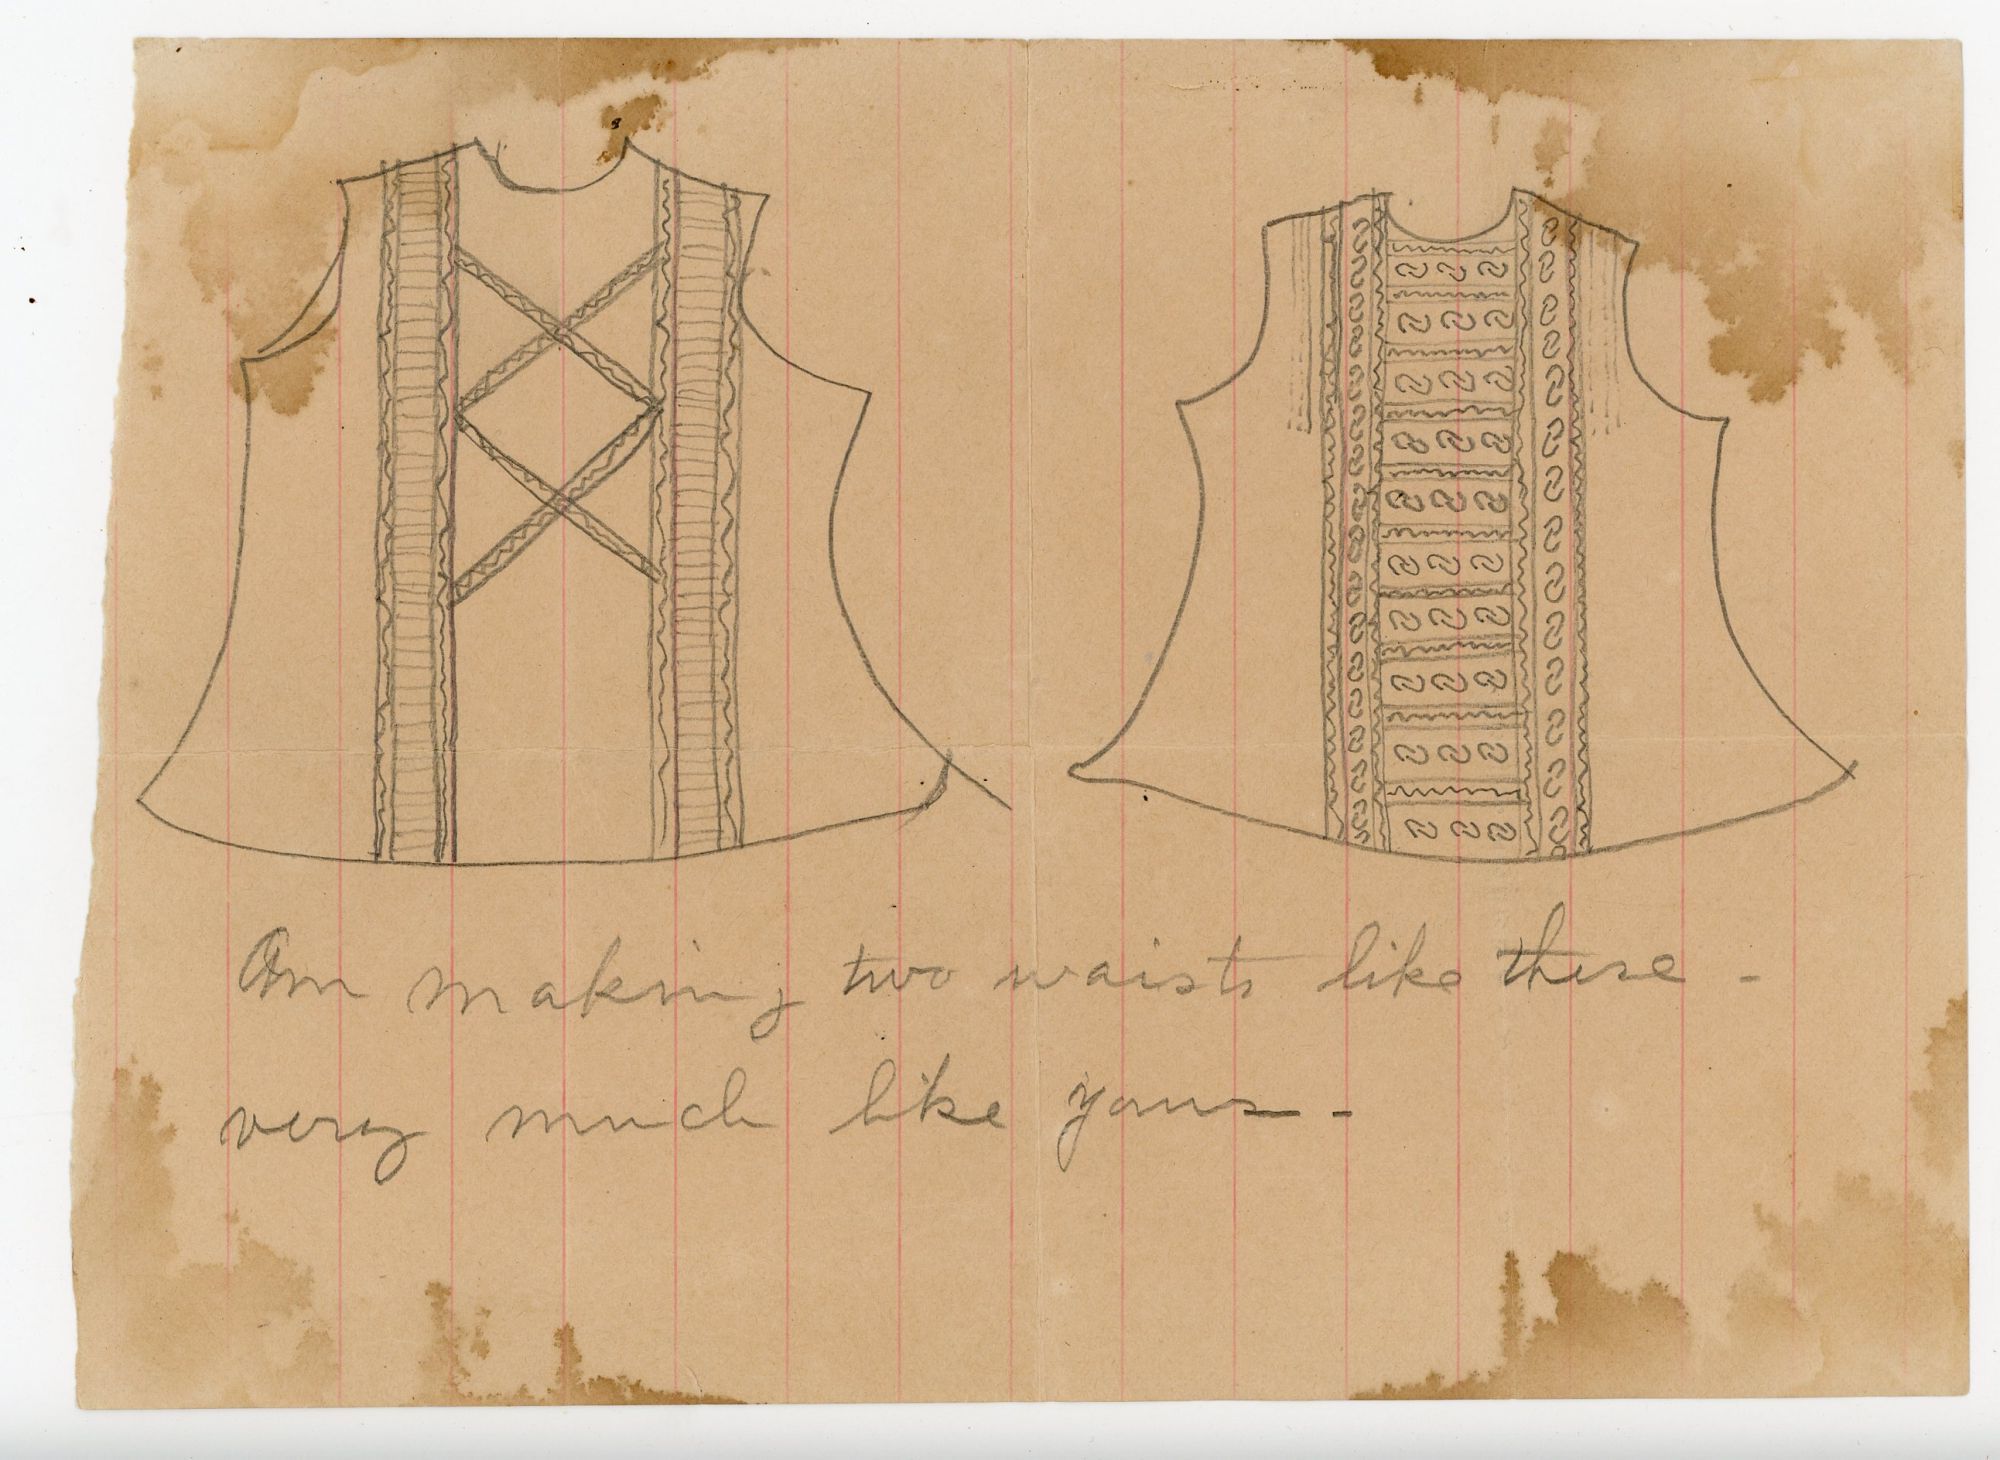 Am making two waists like these -
very much like yours -